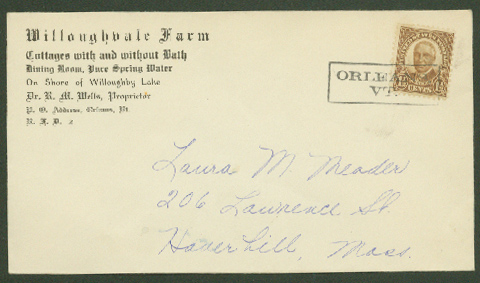 Willoughvale Farm
Cottages with and without Bath
Dining Room, Pure Spring Water
On Shore of Willoughby Lake
Dr. R. M. Wells, Proprietor
P. O. Address, Orleans, Vt.
R. F. D. 2
ORLEANS
VT.
CENTS
Laura M. Meader
206 Lawrence St.
Haverhill, Mass.